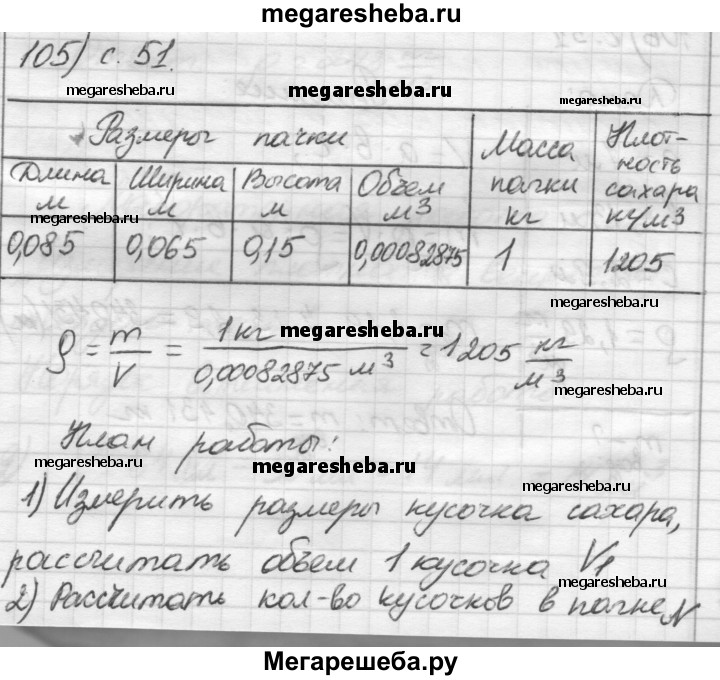 megaresheba.ru
105) с. 51.
megaresheba.ru
megaresheba.ru
megaresheba.ru
Размеры пачки
Масса пачки кг
Плот-
ность
сахара
кг/м3
Длина м
Ширина м
Высота м
Объем м3
megaresheba.ru
0,085 0,065 0,15 0,00082875 1 1205
megaresheba.ru
ρ = m/V = 1 кг / 0,00082875 м3 = 1205 кг/м3
megaresheba.ru
megaresheba.ru
План работы:
megaresheba.ru
megaresheba.ru
megaresheba.ru
1) Измерить размеры кусочка сахара,
рассчитать объем 1 кусочка V1
2) Рассчитать кол-во кусочков в пачке N
Мегарешеба.ру